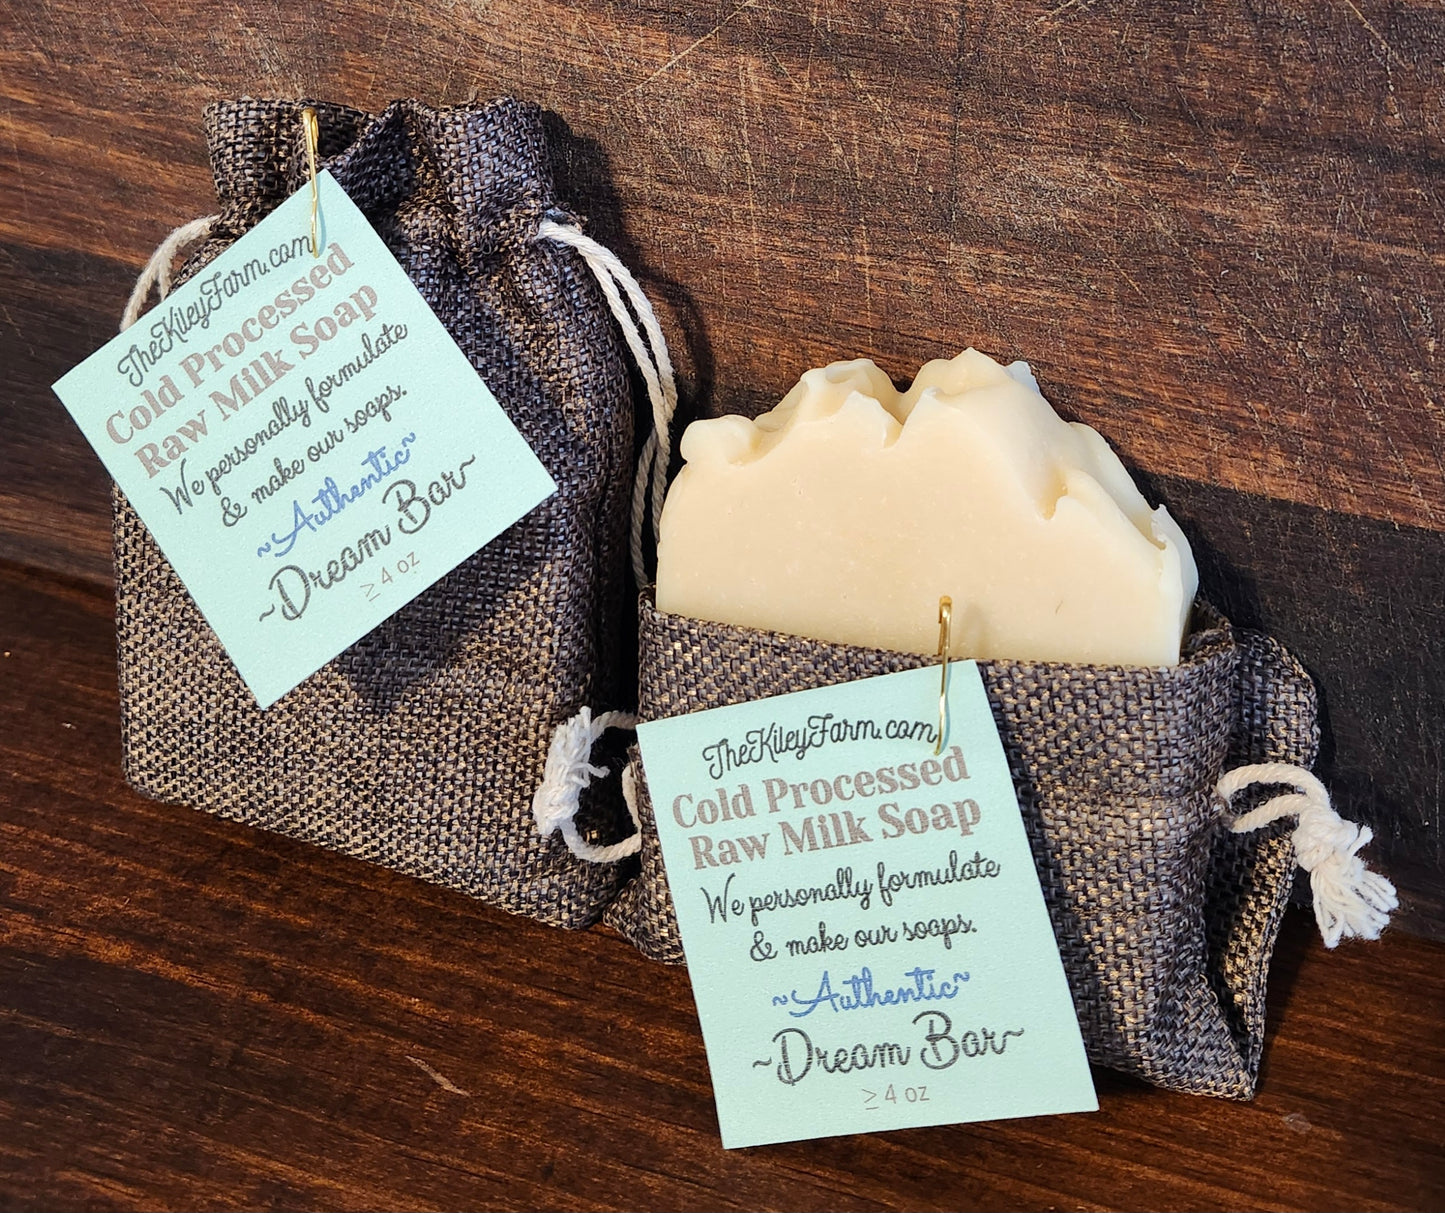 TheKileyFarm.com
Cold Processed
Raw Milk Soap
We personally formulate
& make our soaps.
~Authentic~
~Dream Bar~
≥ 4 oz
TheKileyFarm.com
Cold Processed
Raw Milk Soap
We personally formulate
& make our soaps.
~Authentic~
~Dream Bar~
≥ 4 oz